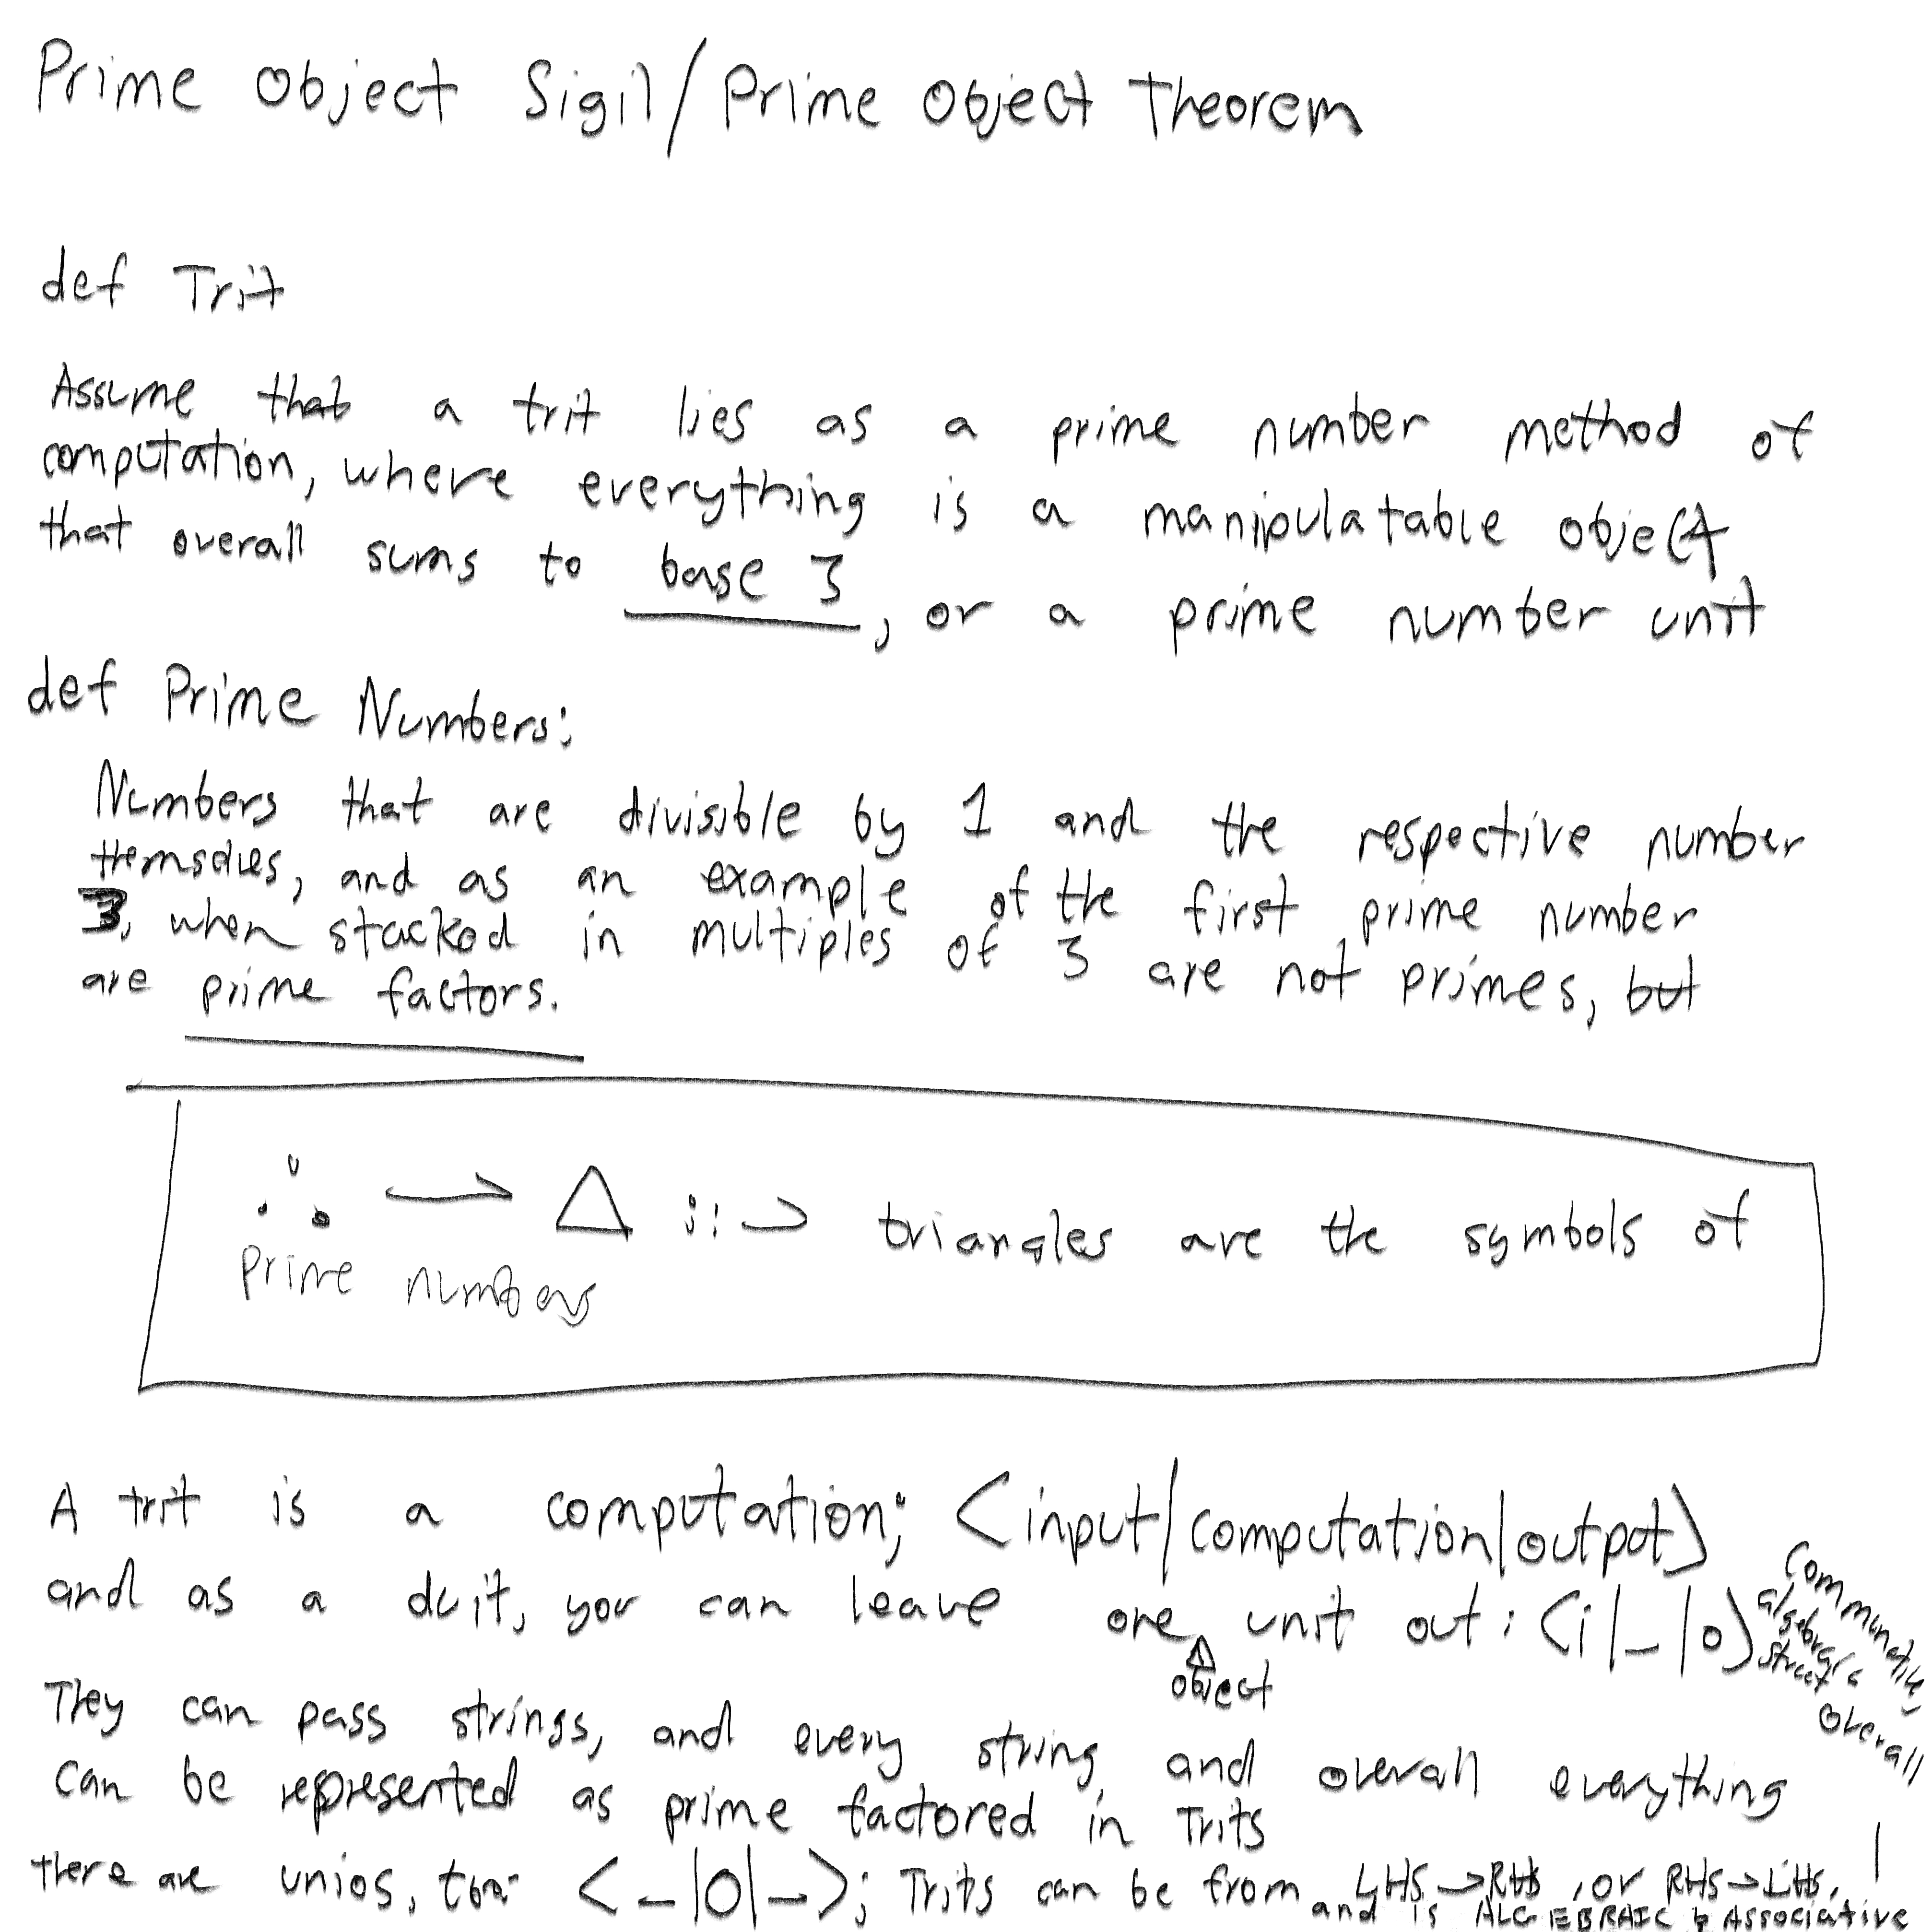 Prime Object Sigil/Prime Object Theorem
def Trit
Assume that a trit lies as a prime number method of
computation, where everything is a manipulatable object
that overall sums to base 3, or a prime number unit
def Prime Numbers:
Numbers that are divisible by 1 and the respective number
themselves, and as an example of the first prime number
3, when stacked in multiples of 3 are not primes, but
are prime factors.
∴ → △ :: > triangles are the symbols of
prime numbers
A trit is a computation; <input|computation|output>
and as a duit, you can leave one unit out: <i|_|o>
object
Commutative
algebraic
struct
overall
They can pass strings, and every string, and overall everything
can be represented as prime factored in Trits
there are unios, too: <_|O|_>; Trits can be from LHS→RHS, or RHS→LHS,
and is ALGEBRAIC & Associative